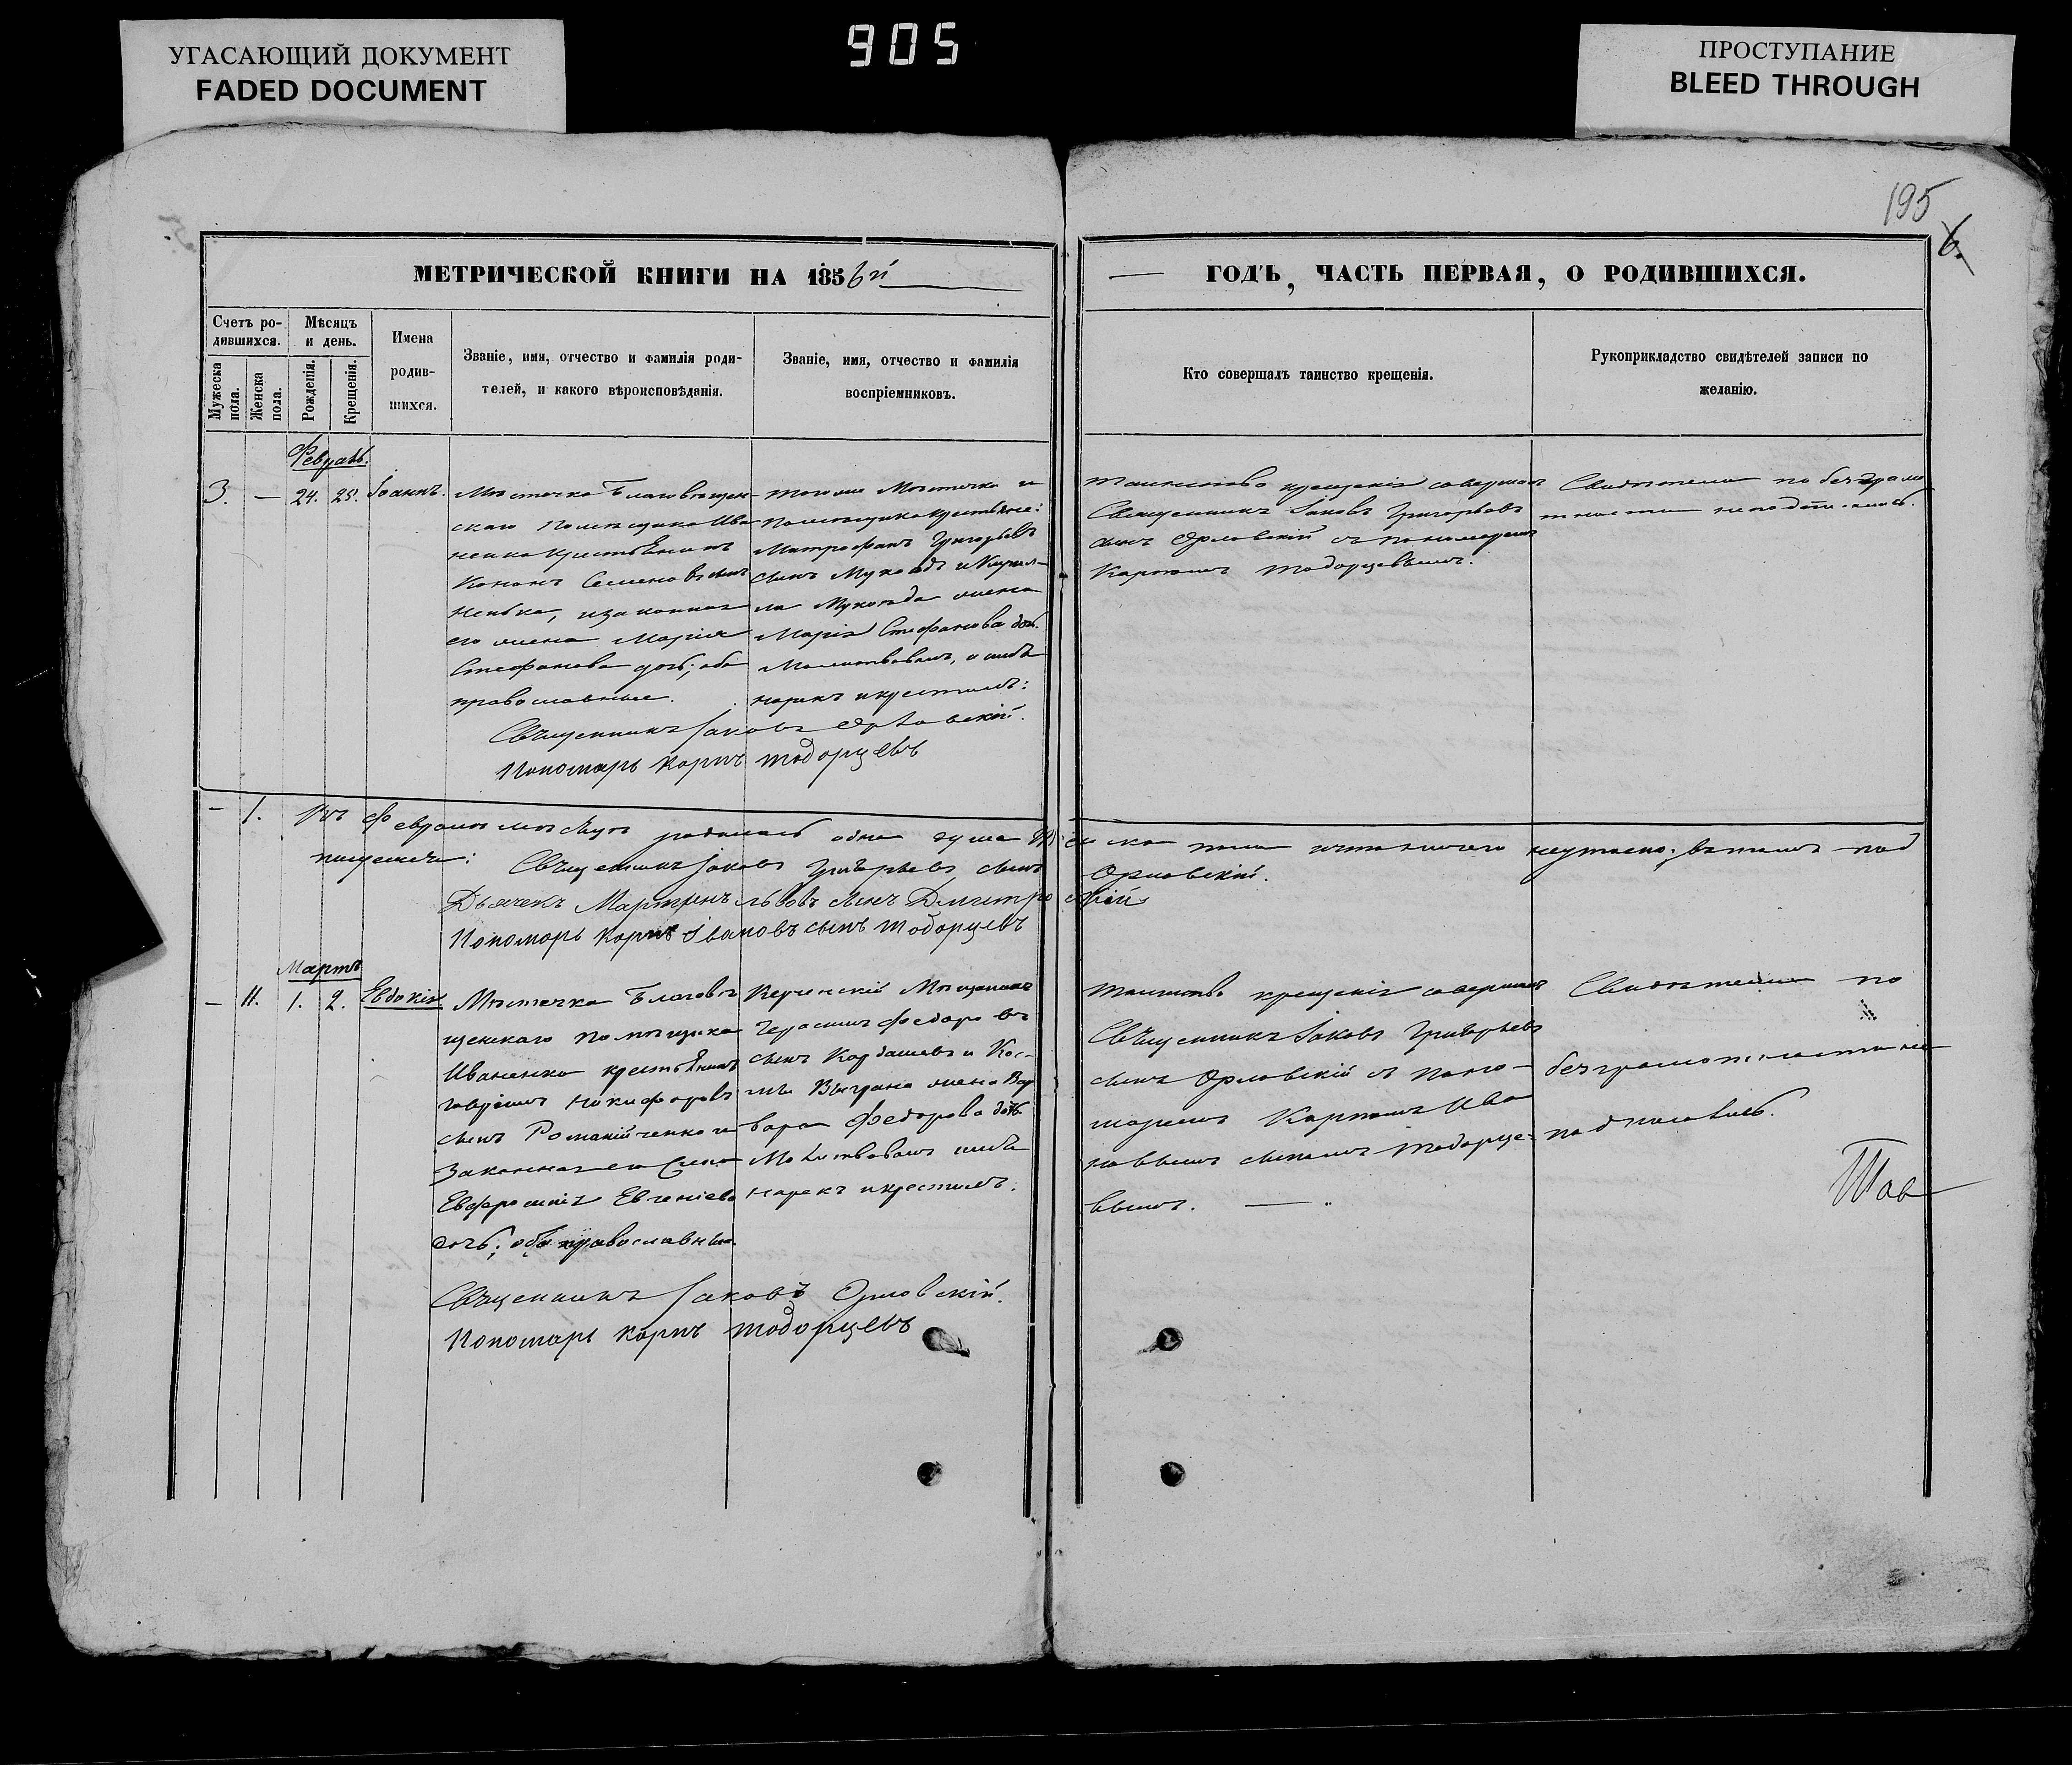 УГАСАЮЩИЙ ДОКУМЕНТ
FADED DOCUMENT
905
ПРОСТУПАНИЕ
BLEED THROUGH
195
6.
МЕТРИЧЕСКОЙ КНИГИ НА 1856й
Счетъ ро-
дившихся.
Мужеска пола.
Женска пола.
Мѣсяцъ
и день.
Рожденія.
Крещенія.
Имена
родив-
шихся.
Званіе, имя, отчество и фамилія роди-
телей, и какого вѣроисповѣданія.
Званіе, имя, отчество и фамилія
воспріемниковъ.
Февраль.
3. — 24. 25. Іоаннъ.
Мѣстечка Благовѣщен-
скаго помѣщика Ива
ненка крестьянинъ
Кононъ Семеновъ сынъ
его жена Марія
Стефанова дочь; оба
православные.
тогоже Мѣстечка и
помѣщика крестьяне:
Митрофанъ Григорьевъ
сынъ
жена
Марія Стефанова дочь.
Молитвовалъ, имя
нарекъ и крестилъ:
Священникъ Іаковъ Орловскій.
Пономарь Карпъ Тодорцевъ
— 1. Въ Февралѣ мѣсяцѣ родилась одна душа
Священникъ Іаковъ Григорьевъ сынъ
Дьячекъ Мартинъ Львовъ сынъ Дмитровскій
Пономарь Карпъ Івановъ сынъ Тодорцевъ
Мартъ
— II. 1. 2. Евдокія
Мѣстечка Благовѣ
щенскаго помѣщика
Иваненка крестьянинъ
Никифоровъ
сынъ Романійченко и
Законная его жена
Евфросинія Евгеніева
дочь; оба православные.
Керченскій Мѣщанинъ
Герасимъ Федоровъ
сынъ Кардашевъ и Кос-
жена Вар
вара Федорова дочь.
Молитвовалъ имя
нарекъ и крестилъ.
Священникъ Іаковъ Орловскій.
Пономарь Карпъ Тодорцевъ
— ГОДЪ, ЧАСТЬ ПЕРВАЯ, О РОДИВШИХСЯ.
Кто совершалъ таинство крещенія.
Рукоприкладство свидѣтелей записи по
желанію.
Таинство крещенія совершалъ
Священникъ Іаковъ Григорьевъ
сынъ Орловскій съ пономаремъ
Карпомъ Тодорцевымъ.
Свидѣтели по безграмо
тности неподписались.
Орловскій.
Таинство крещенія совершалъ
Священникъ Іаковъ Григорьевъ
сынъ Орловскій съ поно-
маремъ Карпомъ Ива
новымъ сыномъ Тодорце-
вымъ. —
Свидѣтели по
безграмотности не
подписались.
Тав